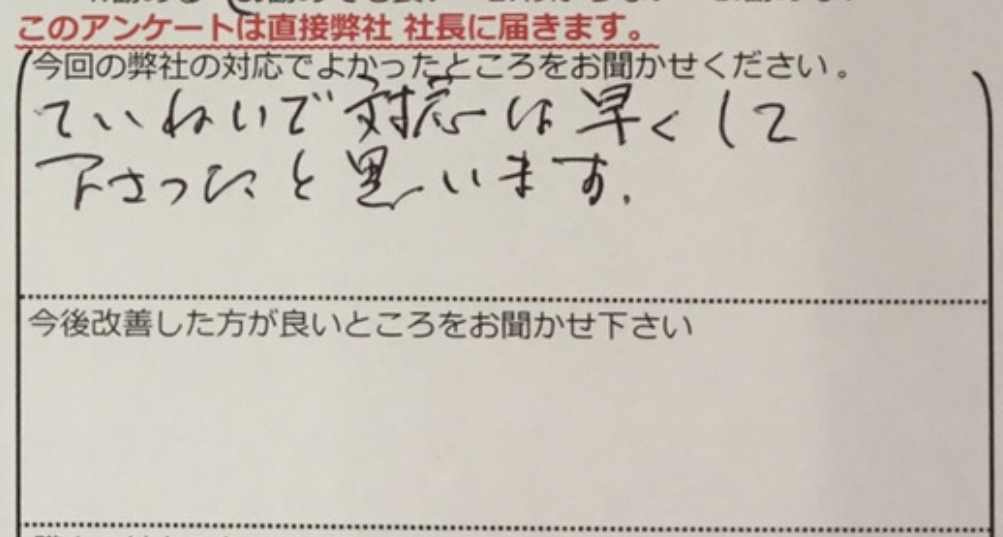 このアンケートは直接弊社 社長に届きます。
今回の弊社の対応でよかったところをお聞かせください。
ていねいで対応は早くして
下さったと思います.
今後改善した方が良いところをお聞かせ下さい